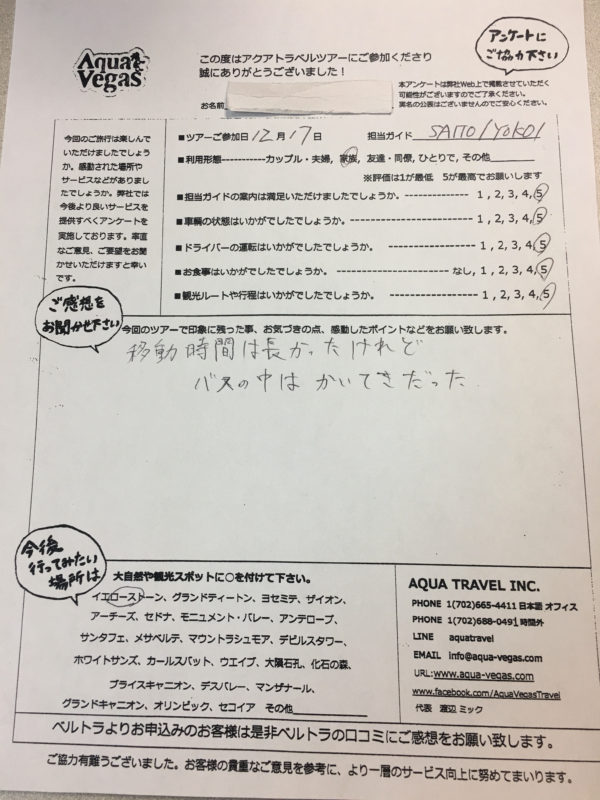 Aqua
Vegas
この度はアクアトラベルツアーにご参加くださり
誠にありがとうございました！
アンケートに
ご協力下さい
本アンケートは弊社Web上で掲載させていただく
可能性がございますのでご了承ください。
実名の公表はございませんのでご安心ください。
お名前
今回のご旅行は楽しんで
いただけましたでしょう
か。感動された場所や
サービスなどがありまし
たでしょうか。弊社では
今後より良いサービスを
提供すべくアンケートを
実施しております。率直
なご意見、ご要望をお聞
かせいただけますと幸い
です。
■ツアーご参加日 12月 17日 担当ガイド SAITO / YOKOI
■利用形態-----------カップル・夫婦, 家族, 友達・同僚, ひとりで, その他
※評価は1が最低 5が最高でお願いします
■担当ガイドの案内は満足いただけましたでしょうか。 ---------- 1, 2, 3, 4, 5
■車輌の状態はいかがでしたでしょうか。 ------------------ 1, 2, 3, 4, 5
■ドライバーの運転はいかがでしたでしょうか。 ---------------- 1, 2, 3, 4, 5
■お食事はいかがでしたでしょうか。 --------------------- なし, 1, 2, 3, 4, 5
■観光ルートや行程はいかがでしたでしょうか。 ---------------- 1, 2, 3, 4, 5
ご感想を
お聞かせ下さい
今回のツアーで印象に残った事、お気づきの点、感動したポイントなどをお願い致します。
移動時間は長かったけれど
バスの中は かいてきだった
今後
行ってみたい
場所は
大自然や観光スポットに○を付けて下さい。
イエローストーン、グランドティートン、ヨセミテ、ザイオン、
アーチーズ、セドナ、モニュメント・バレー、アンテロープ、
サンタフェ、メサベルテ、マウントラシュモア、デビルスタワー、
ホワイトサンズ、カールスバット、ウエイブ、大隕石孔、化石の森、
ブライスキャニオン、デスバレー、マンザナール、
グランドキャニオン、オリンピック、セコイア その他
AQUA TRAVEL INC.
PHONE 1(702)665-4411 日本語 オフィス
PHONE 1(702)688-0491 時間外
LINE aquatravel
EMAIL info@aqua-vegas.com
URL:www.aqua-vegas.com
www.facebook.com/AquaVegasTravel
代表 渡辺 ミック
ベルトラよりお申込みのお客様は是非ベルトラの口コミにご感想をお願い致します。
ご協力有難うございました。お客様の貴重なご意見を参考に、より一層のサービス向上に努めてまいります。